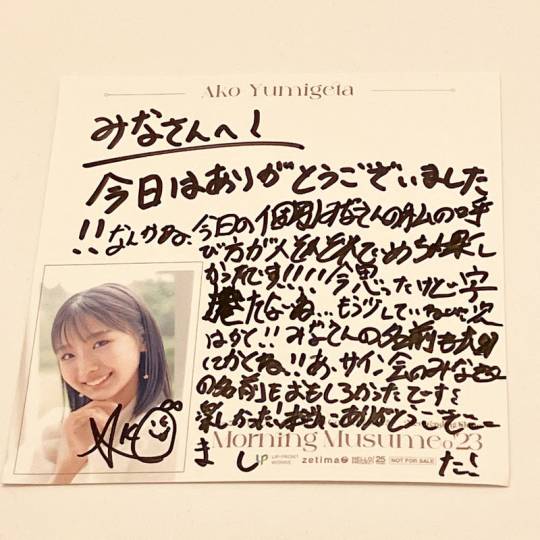 Ako Yumigeta
みなさんへ!
今日はありがとうございました
!!なんかね、今日の個別はみなさんの私の呼
び方が人それぞれでめちゃ楽し
かったです!!!!今思ったけど字
汚たないね...もう少していねいに
はかく!!みなさんの名前も
にかくね!!あ、サイン会のみなさま
の名前もおもしろかったです
楽しかった!本当にありがとうござい
Morning Musume。'23
まし
た!
UP-FRONT WORKS zetima HELLO! 25 NOT FOR SALE